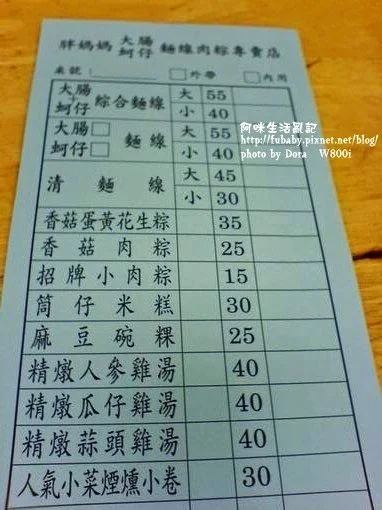 胖媽媽 大腸 蚵仔 麵線肉粽專賣店
桌號：________ □外帶 □內用
大腸+蚵仔 綜合麵線 大 55
小 40
大腸□ 蚵仔□ 麵線 大 55
小 40
清麵線 大 45
小 30
香菇蛋黃花生粽 35
香菇肉粽 25
招牌小肉粽 15
筒仔米糕 30
麻豆碗粿 25
精燉人參雞湯 40
精燉瓜仔雞湯 40
精燉蒜頭雞湯 40
人氣小菜煙燻小卷 30
阿咪生活亂記
http://fubaby.pixnet.net/blog/
photo by Dora W800i